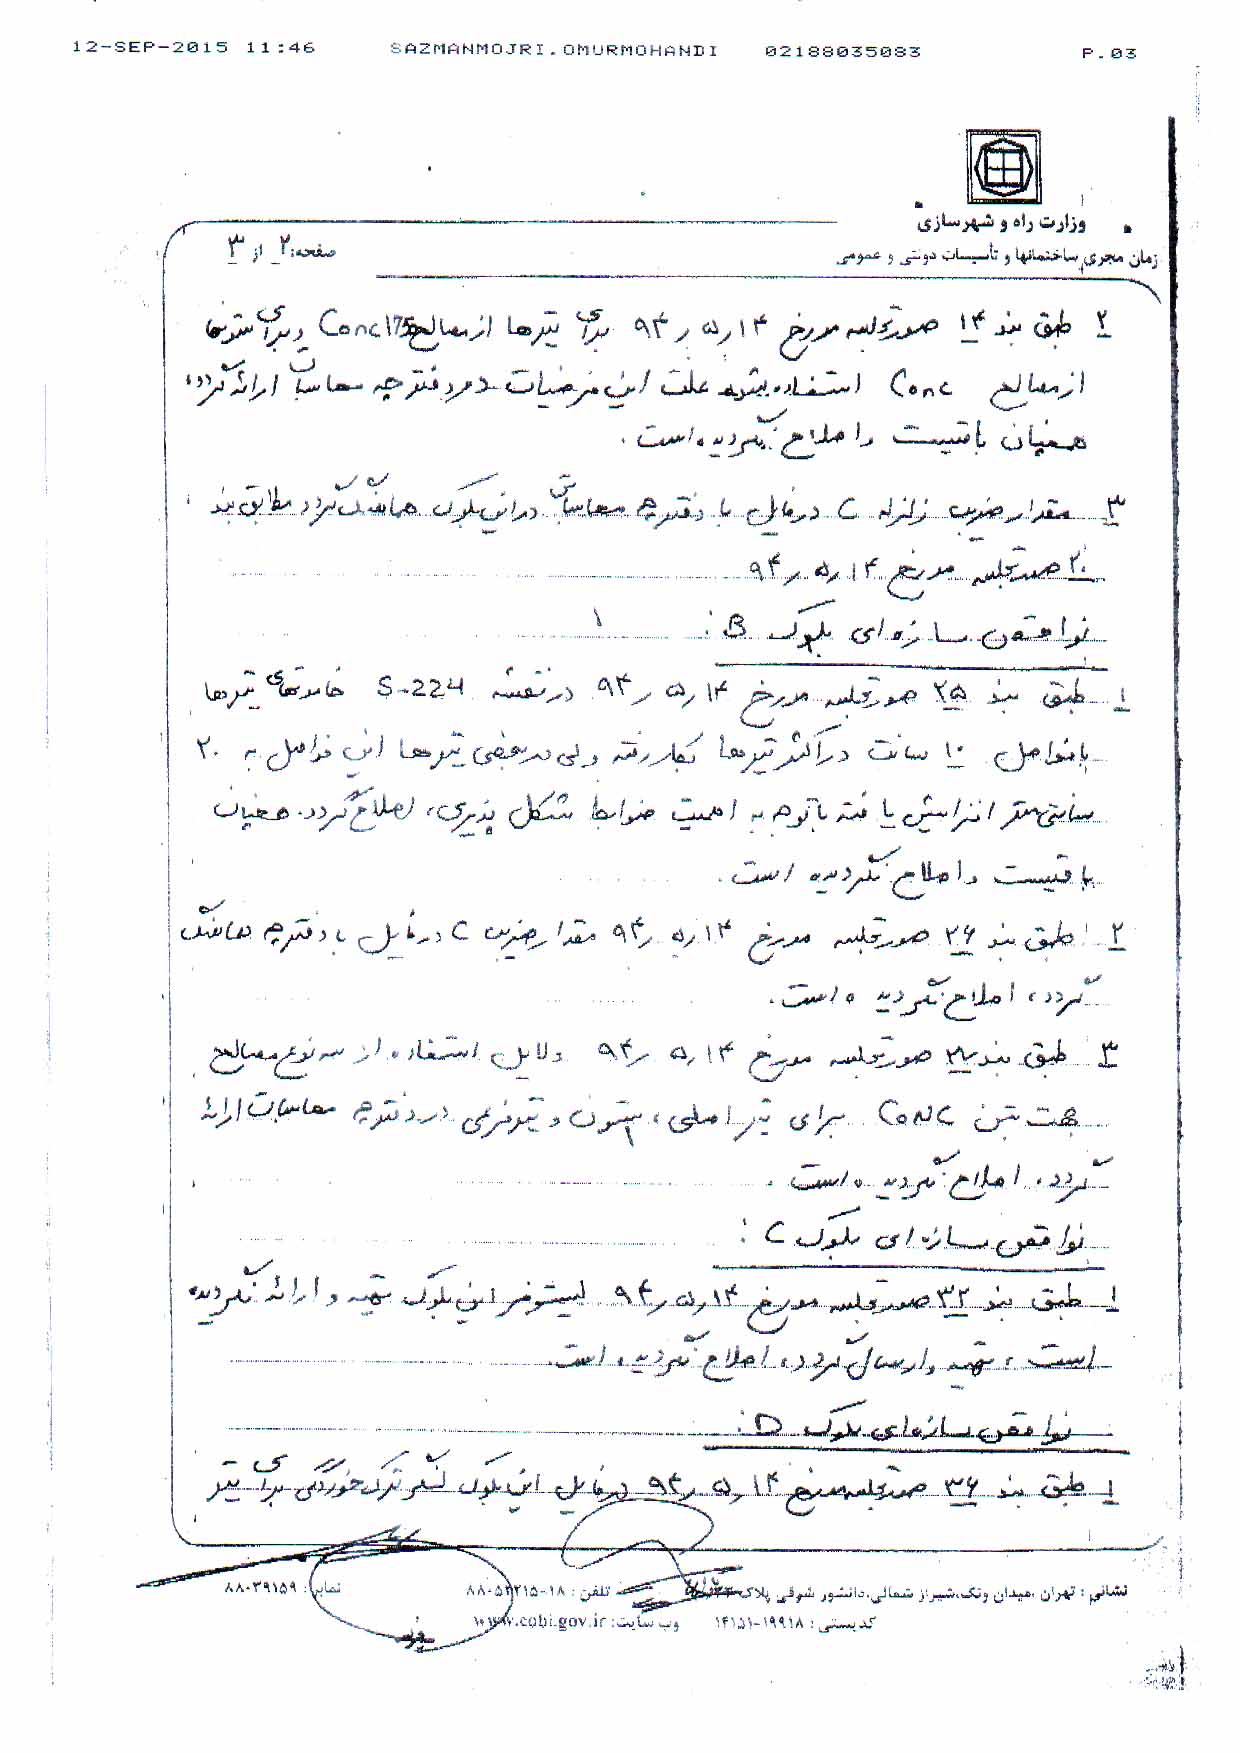 12-SEP-2015 11:46 SAZMANMOJRI.OMURMOHANDI 02188035083 P.03
وزارت راه و شهرسازی
زمان مجری ساختمانها و تأسیسات دولتی و عمومی
صفحه: ۲ از ۳
۲ طبق بند ۱۴ صورتجلسه مورخ ۹۴٫۵٫۱۴ برای تیرها از مصالح Conc175 و برای ستونها
از مصالح Conc استفاده بشود علت این فرضیات در دفترچه محاسبات ارائه گردد،
همچنان باقیست و اصلاح نگردیده است.
۳ مقدار ضریب زلزله C در فایل با دفترچه محاسباتی در این بلوک هماهنگ گردد مطابق بند
۲۰ صورتجلسه مورخ ۹۴٫۵٫۱۴
نواقص سازه ای بلوک B: ۱
۱ طبق بند ۲۵ صورتجلسه مورخ ۹۴٫۵٫۱۴ در نقشه S-224 خاموتهای تیرها
با فواصل ۱۰ سانت در اکثر تیرها بکار رفته ولی در بعضی تیرها این فواصل به ۲۰
سانتی متر افزایش یافته با توجه به اهمیت ضوابط شکل پذیری، اصلاح گردد. همچنان
باقیست و اصلاح نگردیده است.
۲ طبق بند ۲۶ صورتجلسه مورخ ۹۴٫۵٫۱۴ مقدار ضریب C در فایل با دفترچه هماهنگ
گردد، اصلاح نگردیده است.
۳ طبق بند صورتجلسه مورخ ۹۴٫۵٫۱۴ دلایل استفاده از سه نوع مصالح
جهت بتن CONC برای تیر اصلی، ستون و تیر فرعی در دفترچه محاسبات ارائه
گردد، اصلاح نگردیده است.
نواقص سازه ای بلوک C:
۱ طبق بند ۳۲ صورتجلسه مورخ ۹۴٫۵٫۱۴ لیستوفر این بلوک تهیه و ارائه نگردیده
است، تهیه و ارسال گردد، اصلاح نگردیده است.
نواقص سازه ای بلوک D:
۱ طبق بند ۳۶ صورتجلسه مورخ ۹۴٫۵٫۱۴ در فایل این بلوک ترک خوردگی برای تیر
نشانی: تهران، میدان ونک، شیراز شمالی، دانشور شرقی پلاک تلفن: ۱۸-۸۸۰۵۲۲۱۵ نمابر: ۸۸۰۳۹۱۵۹
کد پستی: ۱۹۹۱۸-۱۴۱۵۱ وب سایت: www.cobi.gov.ir